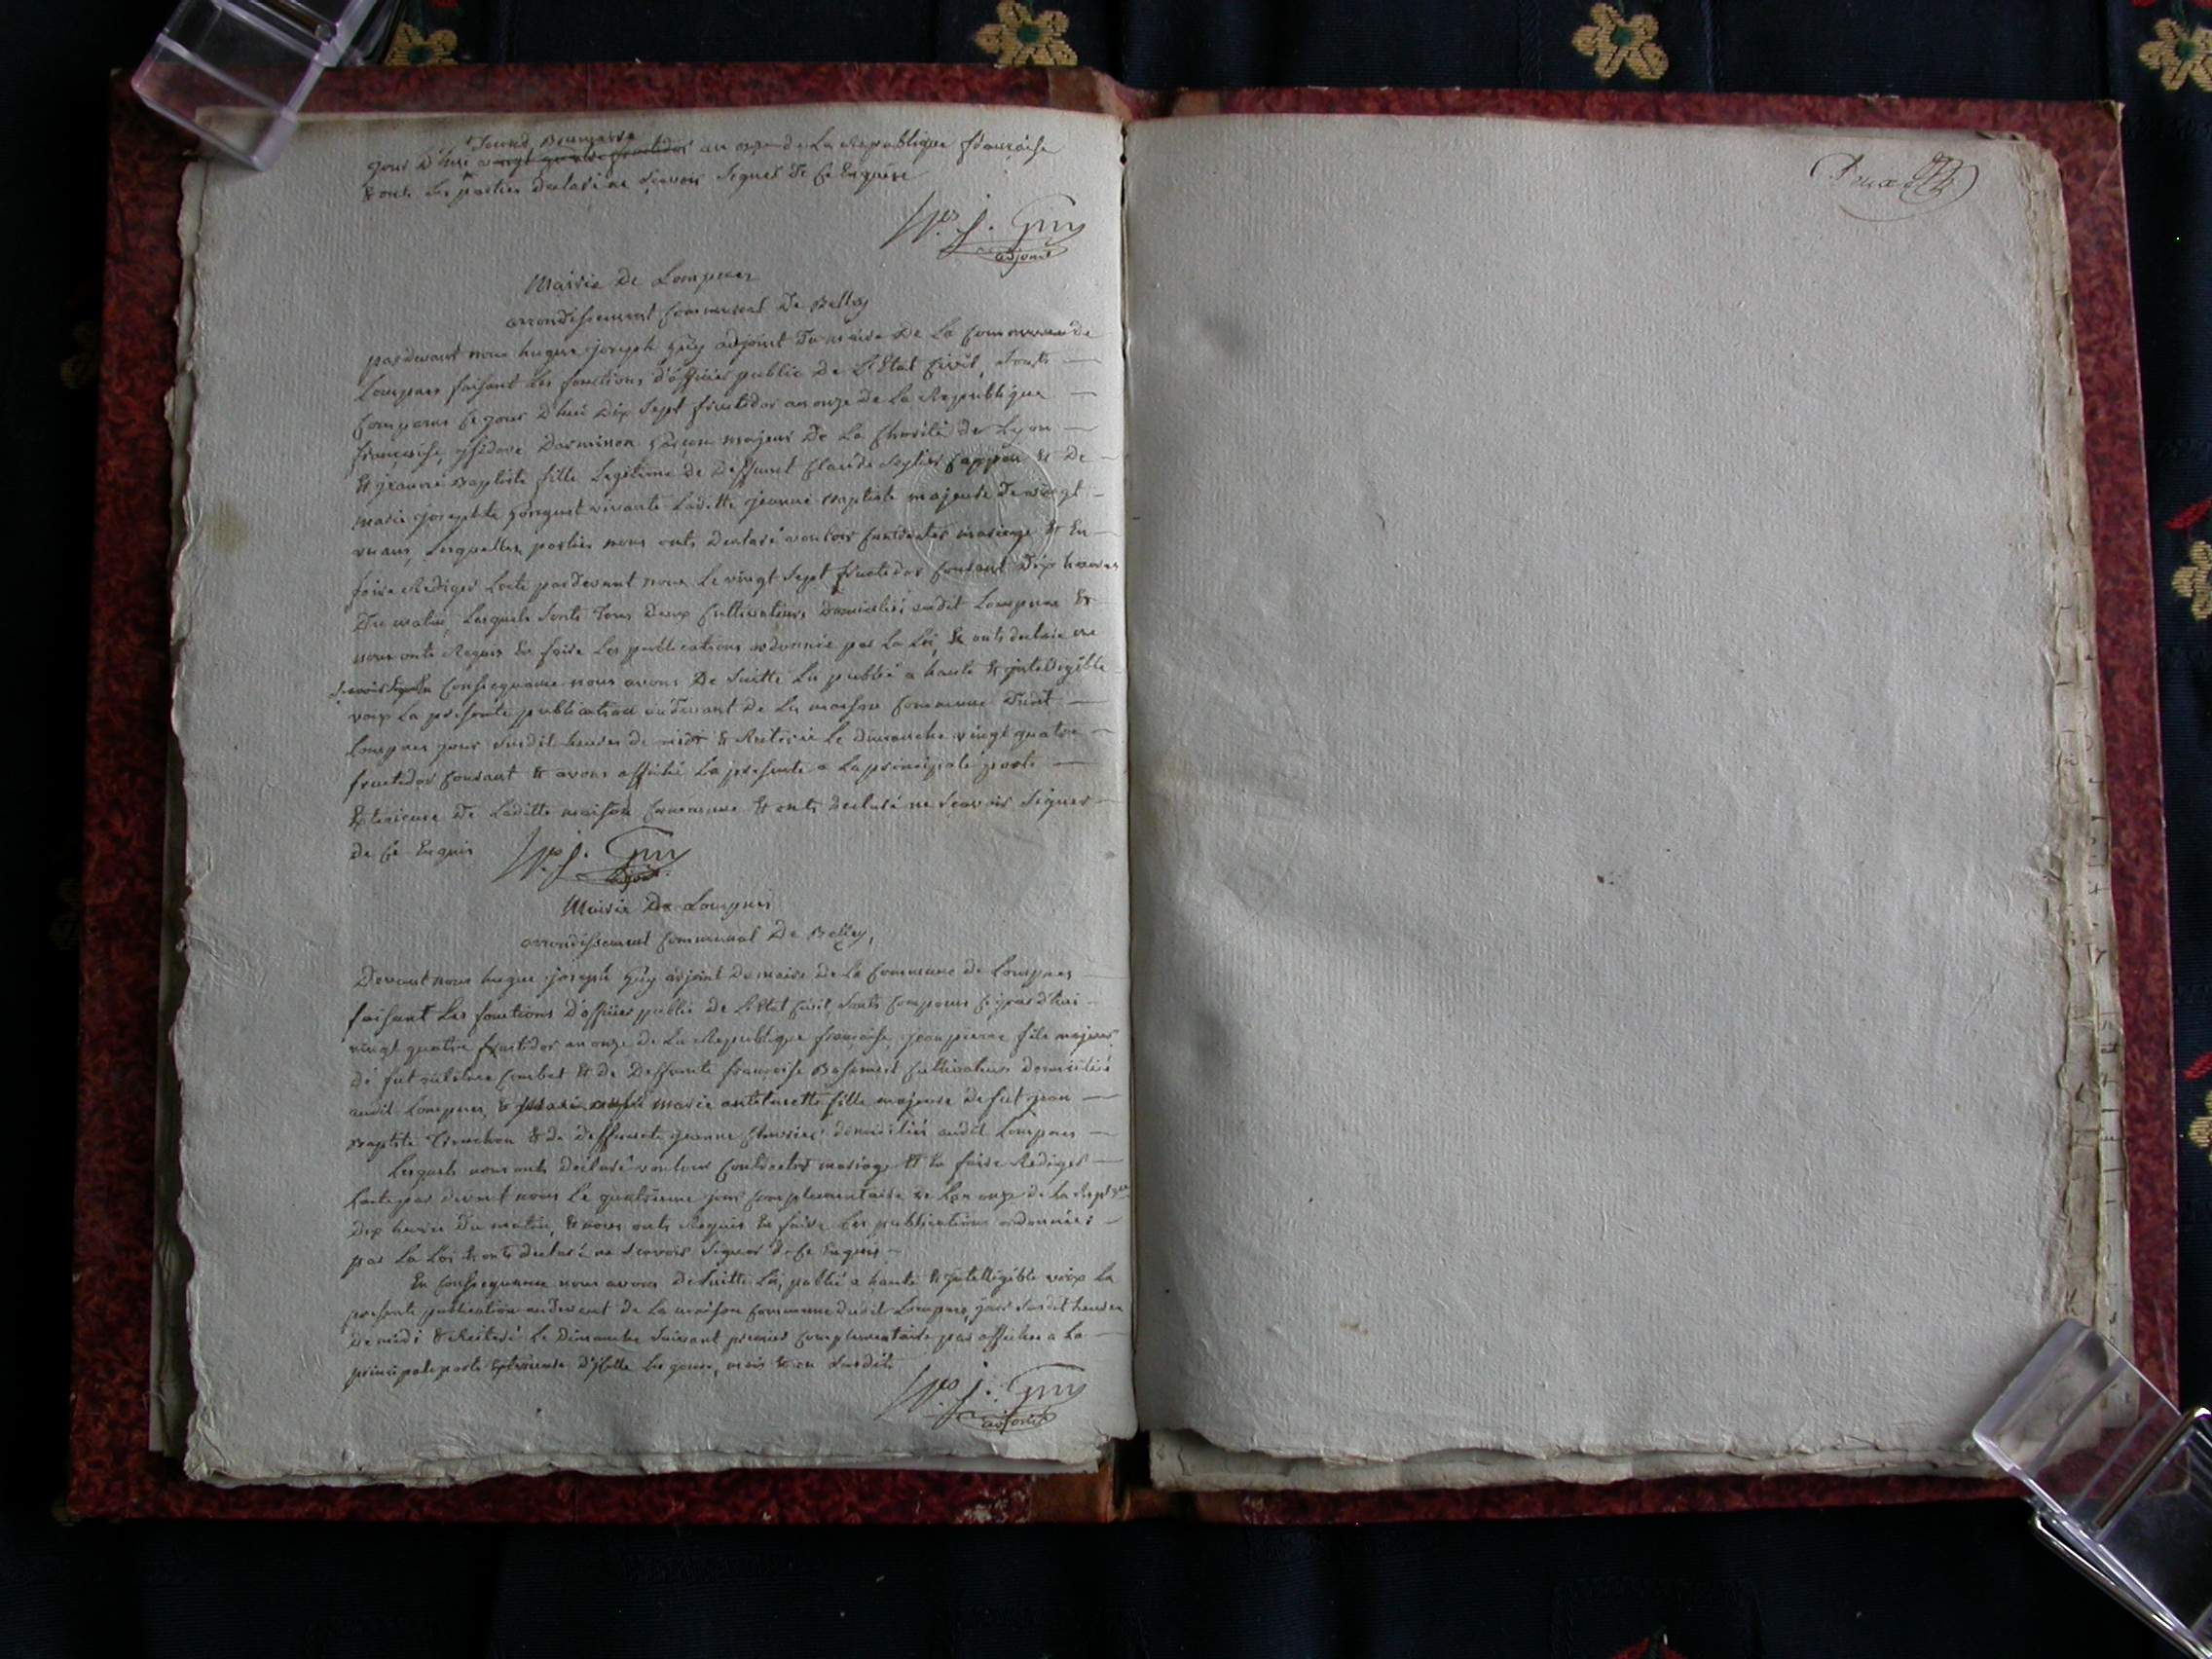 second Brumaire
jour D'hui vingt quatre fructidor an onze de La Republique francaise
& onts les parties declaré ne scavoir signer de ce Enquise
hues j. Guy
adjoint
Mairie de Lompnes
arrondissement Communal De Belley
pardevant nous hugue joseph Guy adjoint Du maire De La Commune de
Lompnes faisant les fonctions d'officier public De L'Etat Civil, sonts
Comparus Ce jour D'hui Dix Sept fructidor an onze De La Republique
francaise, isidore garçon majeur De La Charité de Lyon
Et jeanne Baptiste fille Legitime de Deffunt Claude Cappon & De
marie josephte vivante Laditte jeanne Baptiste majeure De vingt
un ans, Lesquelles parties nous onts Declaré vouloir Contracter mariage & En
faire Rediger Lacte pardevant nous Le vingt Sept fructidor Courant Dix heures
Du matin Lesquels sonts tous Deux Cultivateurs Domiciliés audit Lompnes &
nous onts Requis En faire Les publications ordonnée par La Loi, & onts declaré ne
scavoir signer En Consequance nous avons De suitte Lu publié a haute & intelligible
voix La presente publication audevant de La maison Commune Dudit
Lompnes jour susdit heures de midi & Reiteré Le Dimanche vingt quatre
fructidor Courant & avons affiché La presente a La principale porte
Exterieure De Laditte maison Commune & onts declaré ne scavoir signer
de Ce Enquis
hues j. Guy
adjoint
Mairie De Lompnes
arrondissement Communal De Belley,
Devant nous hugue joseph Guy adjoint Du maire de La Commune de Lompnes
faisant Les fonctions D'officier public De L'Etat Civil, sonts Comparus Ce jourd'hui
vingt quatre fructidor an onze de La Republique francaise, jean pierre fils majeur
De fut Combet & De Deffunte francoise Cultivateur domicilié
audit Lompnes, & marie antoinette fille majeure de fut jean
Baptiste & de Deffunte jeanne domiciliés audit Lompnes
Lesquels nous onts declaré vouloir Contracter mariage Et En faire Rediger
Lacte par devant nous Le quatrieme jour Complementaire De Lan onze de La Repque
Dix heures Du matin, & nous onts Requis En faire Les publications ordonnées
par La Loi & onts declaré ne scavoir signer de Ce Enquis
En Consequance nous avons De suitte Lu, publié a haute & intelligible voix La
presente publication audevant de La maison Commune dudit Lompnes, jour susdit heures
De midi & Reiteré Le Dimanche suivant premier Complementaire par affiches a La
principale porte Exterieure D'icelle Les jours, mois & an susdits
hues j. Guy
adjoint